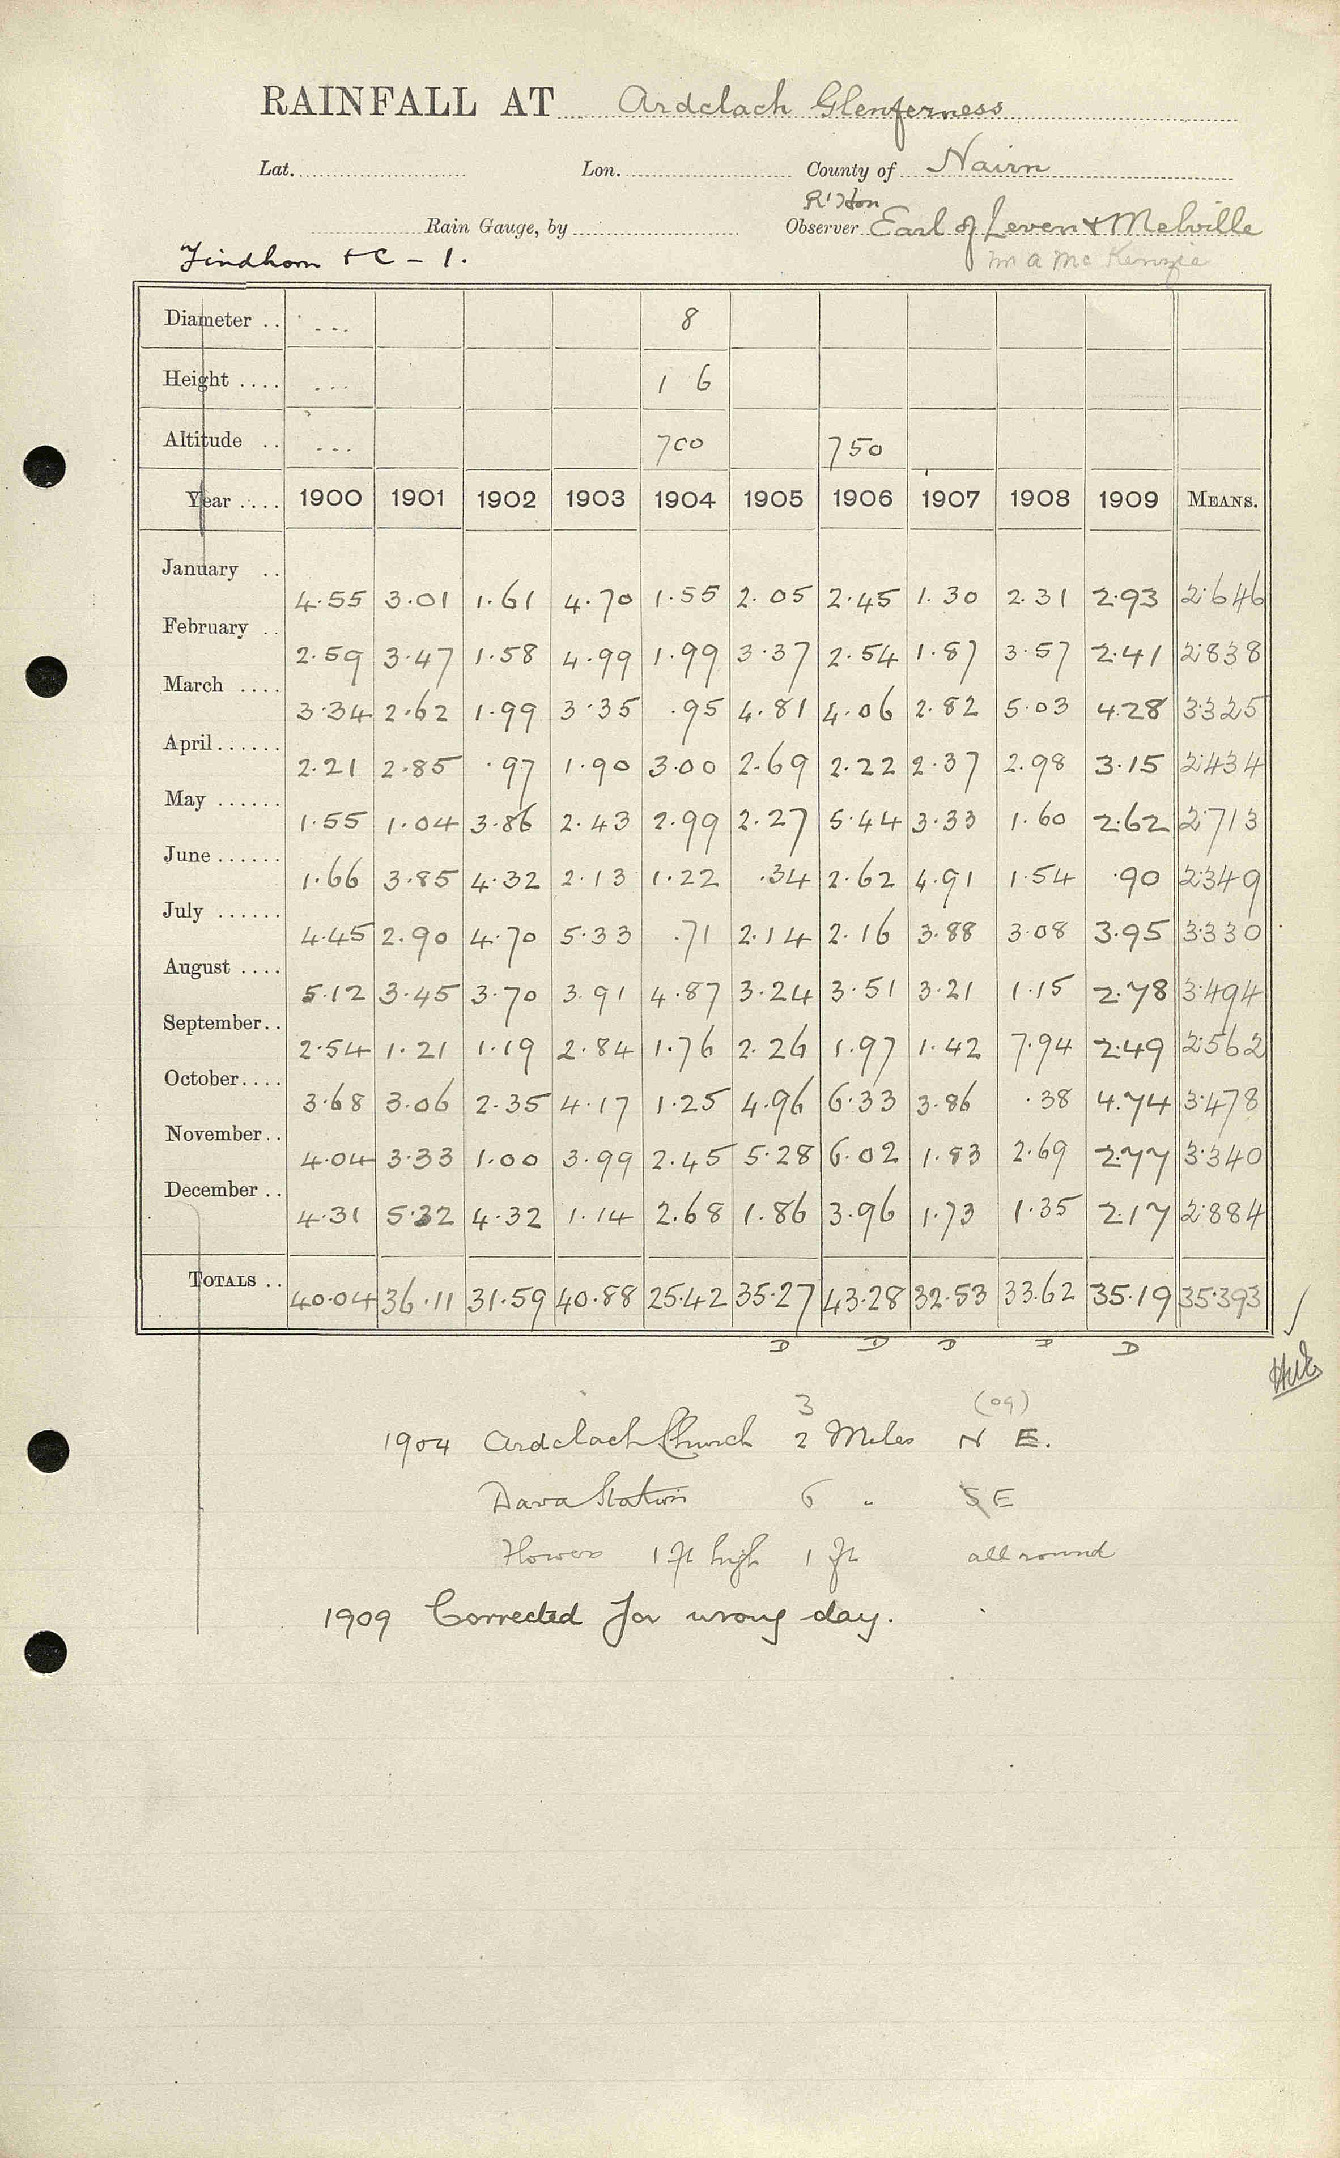 RAINFALL AT Ardclach Glenferness
Lat. Lon. County of Nairn
Rt Hon
Rain Gauge, by Observer Earl of Leven & Melville
Findhorn + C - 1. M A McKenzie
Diameter .. ... 8
Height .... ... 1 6
Altitude .. ... 700 750
Year .... 1900 1901 1902 1903 1904 1905 1906 1907 1908 1909 MEANS.
January .. 4.55 3.01 1.61 4.70 1.55 2.05 2.45 1.30 2.31 2.93 2.646
February .. 2.59 3.47 1.58 4.99 1.99 3.37 2.54 1.87 3.57 2.41 2.838
March .... 3.34 2.62 1.99 3.35 .95 4.81 4.06 2.82 5.03 4.28 3.325
April...... 2.21 2.85 .97 1.90 3.00 2.69 2.22 2.37 2.98 3.15 2.434
May ...... 1.55 1.04 3.86 2.43 2.99 2.27 5.44 3.33 1.60 2.62 2.713
June...... 1.66 3.85 4.32 2.13 1.22 .34 2.62 4.91 1.54 .90 2.349
July ...... 4.45 2.90 4.70 5.33 .71 2.14 2.16 3.88 3.08 3.95 3.330
August .... 5.12 3.45 3.70 3.91 4.87 3.24 3.51 3.21 1.15 2.78 3.494
September.. 2.54 1.21 1.19 2.84 1.76 2.26 1.97 1.42 7.94 2.49 2.562
October.... 3.68 3.06 2.35 4.17 1.25 4.96 6.33 3.86 .38 4.74 3.478
November.. 4.04 3.33 1.00 3.99 2.45 5.28 6.02 1.83 2.69 2.77 3.340
December .. 4.31 5.32 4.32 1.14 2.68 1.86 3.96 1.73 1.35 2.17 2.884
TOTALS .. 40.04 36.11 31.59 40.88 25.42 35.27 43.28 32.53 33.62 35.19 35.393
D D D D D
3 (09)
1904 Ardclach Church 2 Miles N E.
Dava Station 6 " S E
Flowers 1 ft high 1 ft all round
1909 Corrected for wrong day.